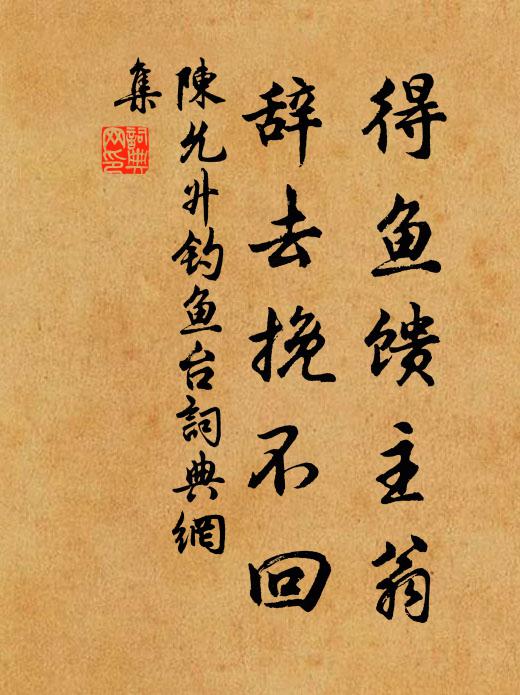 得鱼馈主翁
辞去挽不回
陳允升钓鱼台詞典網
集
詞典網印